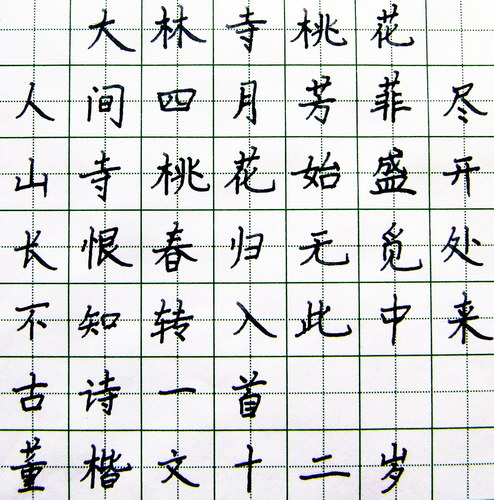 大林寺桃花
人间四月芳菲尽
山寺桃花始盛开
长恨春归无觅处
不知转入此中来
古诗一首
董楷文十二岁